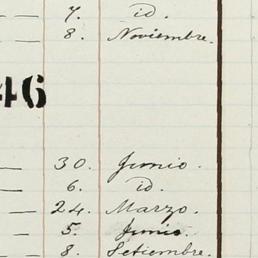 — 7. id.
— 8. Noviembre.
46
— 30. Junio.
— 6. id.
— 24. Marzo.
— 5. Junio.
— 8. Setiembre.